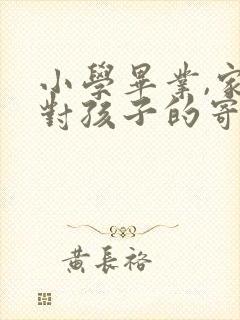 小學畢業,家
對孩子的寄
黃長裕